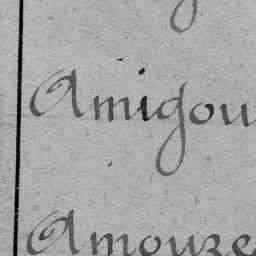 Amigou
Amouze